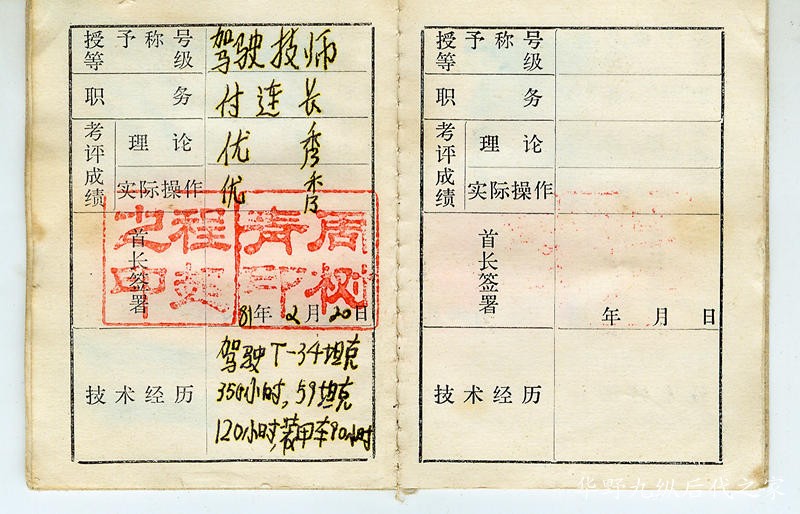 授予称号 驾驶技师
等级
职务 付连长
考评成绩 理论 优秀
实际操作 优秀
首长签署
周树青印
81年2月20日
技术经历 驾驶T-34坦克
350小时，59坦克
120小时，装甲车90小时
授予称号
等级
职务
考评成绩 理论
实际操作
首长签署
年 月 日
技术经历
华野九纵后代之家